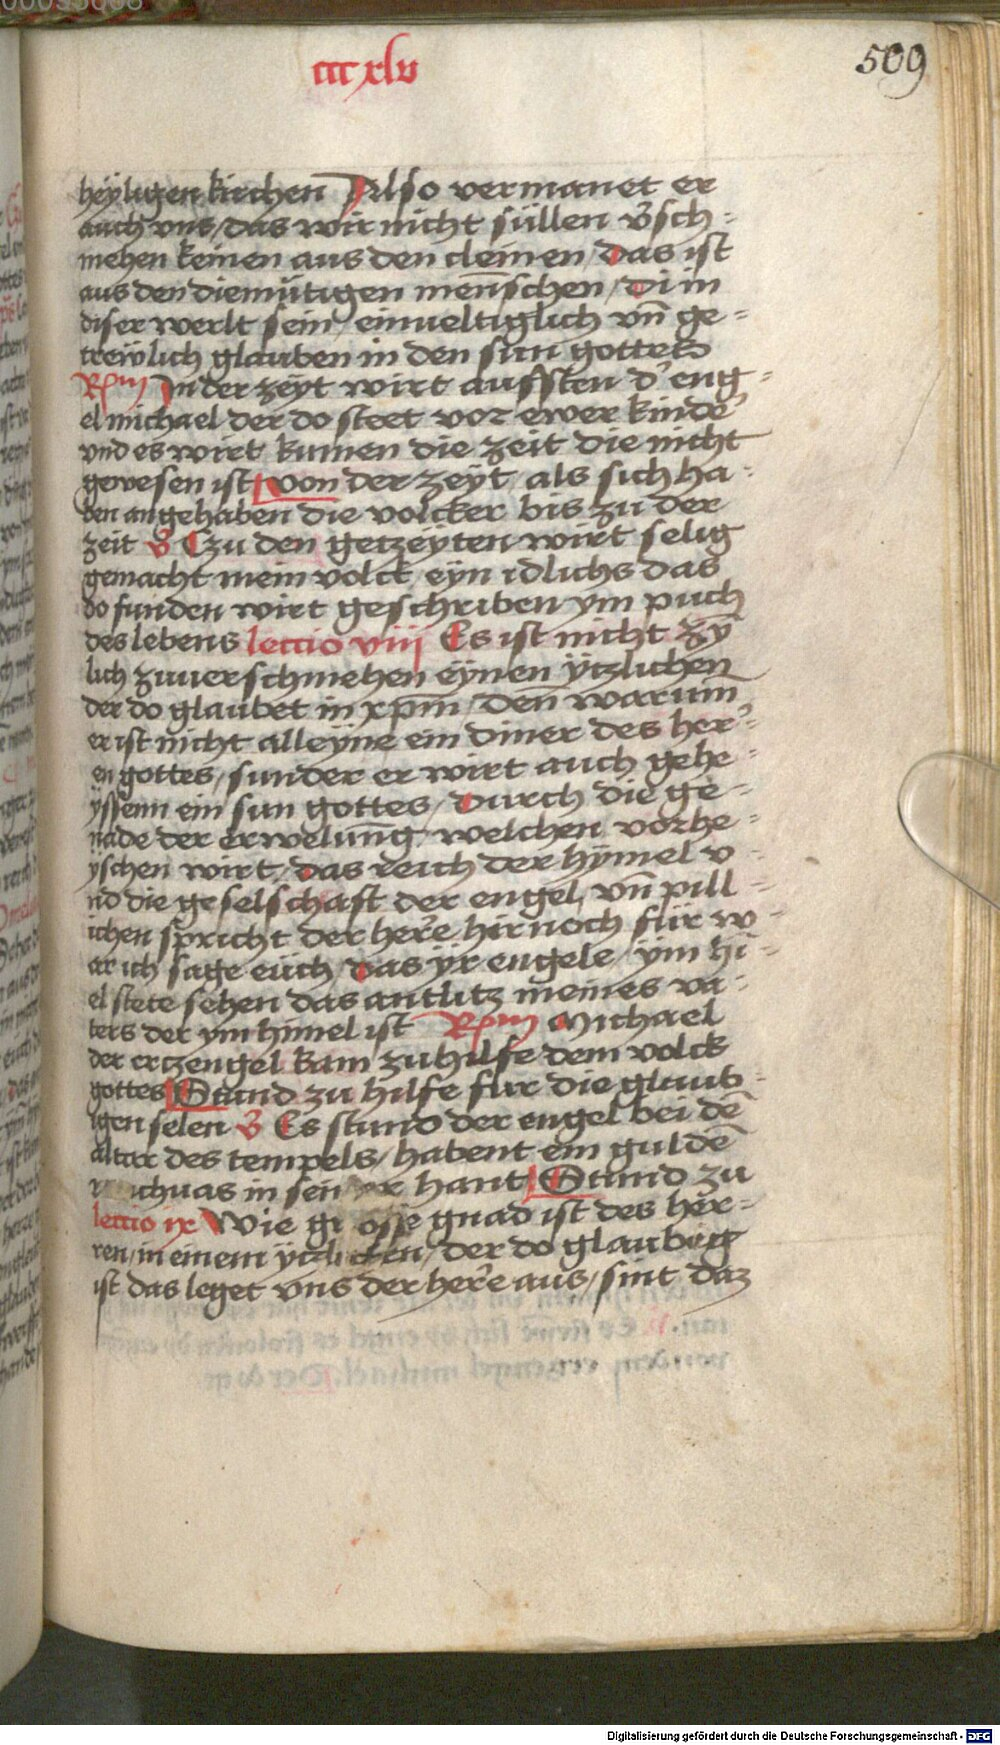 cccxlv
509
heyligen kirchen Also vermanet er
auch vns / das wir nicht süllen v̄sch-
mehen keinen aus den cleinen / das ist
aus den diemütigen men̄schen / di in
diser werlt sein / einueltiglich vn̄ ge-
trewlich glauben in den sun gottes
Rpm̄ In der zeyt wirt auffsten d' eng-
el michael der do steet vor ewer kinde'
vnd es wirt kumen die zeit die nicht
gewesen ist von der zeyt als sich ha-
ben angehaben die volcker bis zu der
zeit v̄ Czu den getzeyten wirt selig
gemacht mein volck / eyn idlichs das
do funden wirt geschriben ym puch
des lebens lectio viij Es ist nicht zy̅
lich zuuerschmehen eynen ytzlichen
der do glaubet in xp̄m / Den̄ warum̄
er ist nicht alleyne ein diner des her'-
en gottes / sunder er wirt auch gehe-
yssenn ein sun gottes / Durch die ge-
nade der erwelun̄g / welchen vorhe-
yschen wirt / das reich der hymel v-
nd die geselschaft der engel, vn̄ pill-
ichen spricht der her'e hirnoch für w-
ar ich sage euch / das yr engele / ym hi-
el stete sehen das antlitz meines va-
ters der ym himel ist Rpm̄ Michael
der erczengel kam zu hilfe dem volck
gottes Stund zu hilfe fur die glaub-
igen selen v̄ Es stund der engel bei de̅
altar des tempels / habent ein gulde̅
chuas in sein er hant Stund zu
lectio ix Wie gr osse gnad ist des her-
ren / in einem yczlichen / der do glaubig
ist das leget vns der her'e aus / sint daz
Digitalisierung gefördert durch die Deutsche Forschungsgemeinschaft - DFG